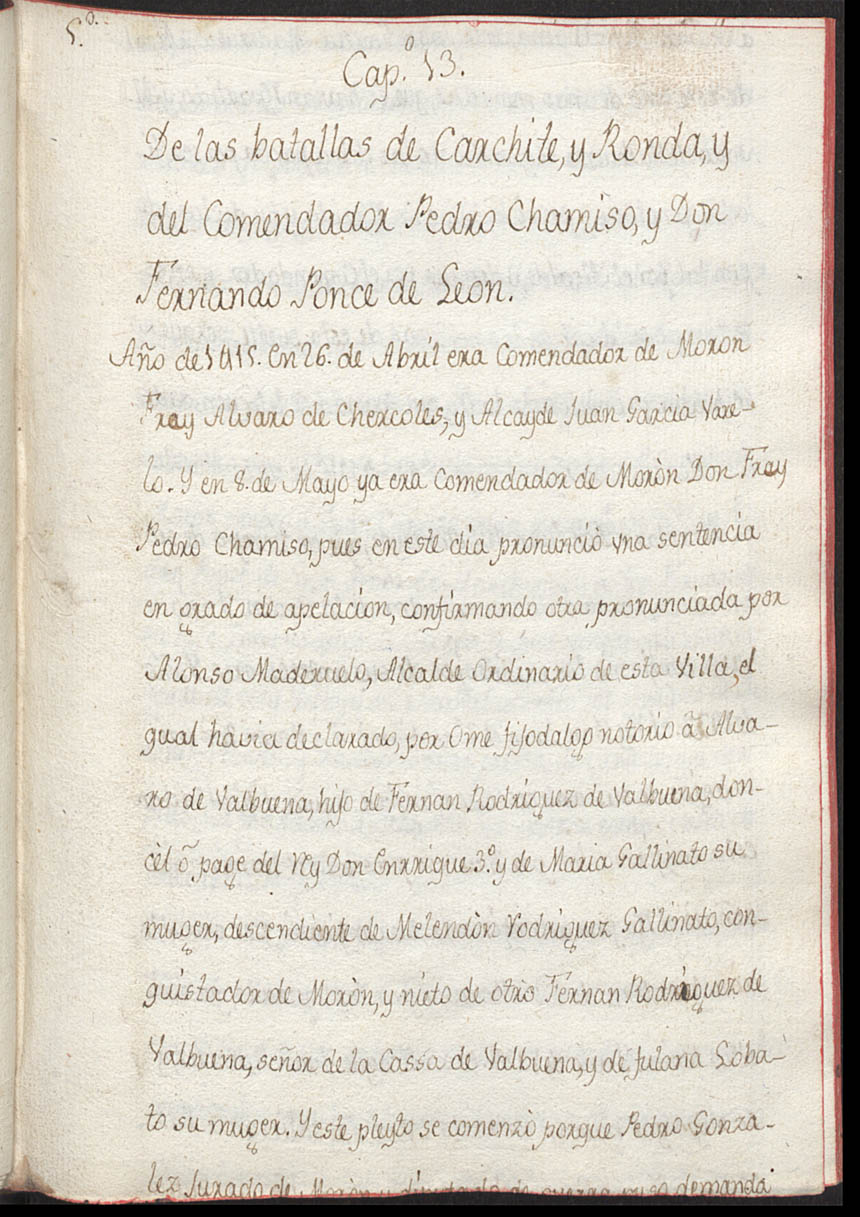 5.º
Cap.º 13.
De las batallas de Carchite, y Ronda, y
del Comendador Pedro Chamiso, y Don
Fernando Ponce de Leon.
Año de 1415. En 26. de Abril era Comendador de Moron
Fray Alvaro de Chercoles, y Alcayde Juan Garcia Vare-
lo. Y en 8. de Mayo ya era Comendador de Moròn Don Fray
Pedro Chamiso, pues en este dia pronunciò vna sentencia
en grado de apelacion, confirmando otra pronunciada por
Alonso Maderuelo, Alcalde Ordinario de esta Villa, el
qual havia declarado, por Ome fijodalgo notorio â Alva-
ro de Valbuena, hijo de Fernan Rodriguez de Valbuena, don-
cèl ô page del Rey Don Enrrique 3.º y de Maria Gallinato su
muger, descendiente de Melendòn Rodriguez Gallinato, con-
quistador de Moròn, y nieto de otro Fernan Rodriguez de
Valbuena, señor de la Cassa de Valbuena, y de fulana Loba-
to su muger. Y este pleyto se comenzò porque Pedro Gonza-
lez Jurado de Moròn y diputado de guerra puso demanda